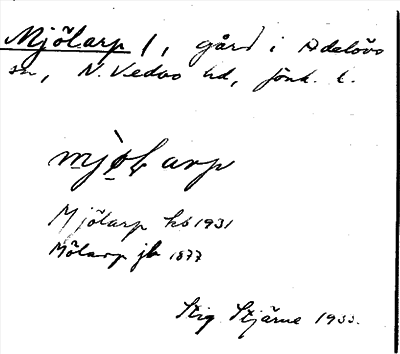 Mjölarp 1, gård i Adelövs
sn, N. Vedbo hd, Jönk. l.
mjö̀larp
Mjölarp kb 1931
Mölarp jb 1877
Stig Stjärne 1933.